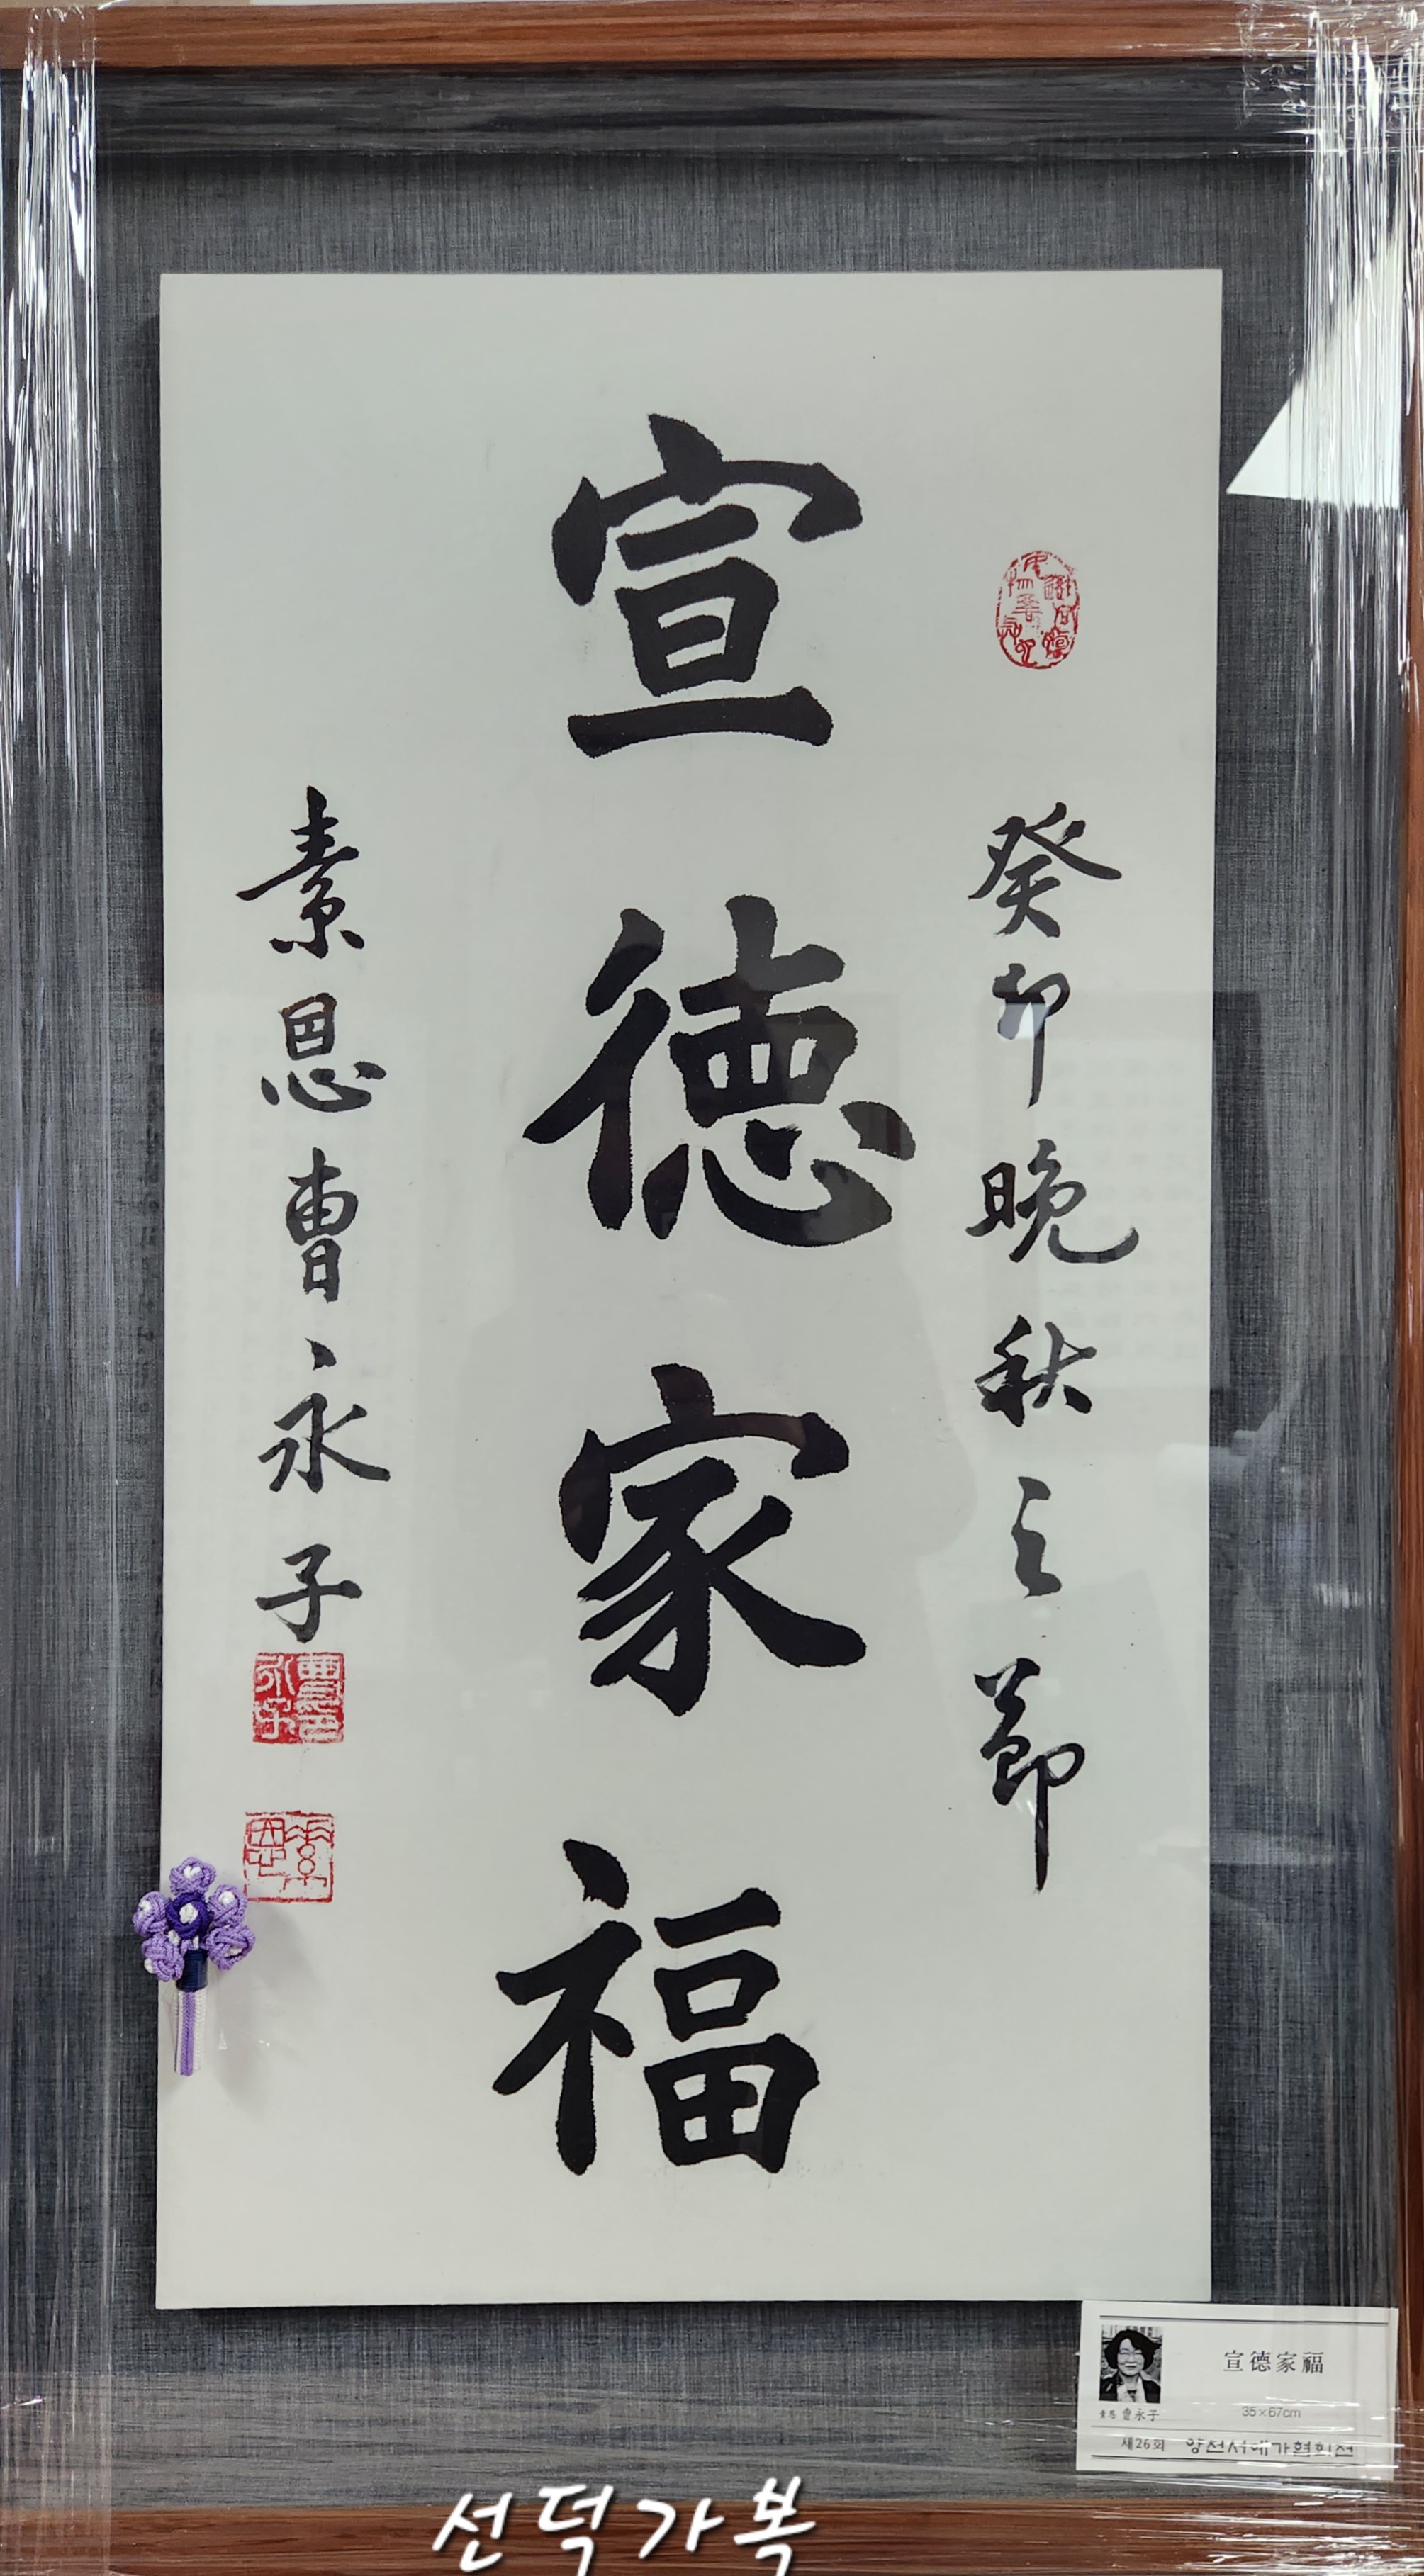 癸卯晩秋之節
宣德家福
素恩曺永子
宣德家福
素恩 曺永子
35×67cm
제26회 양천서예가협회전
선덕가복